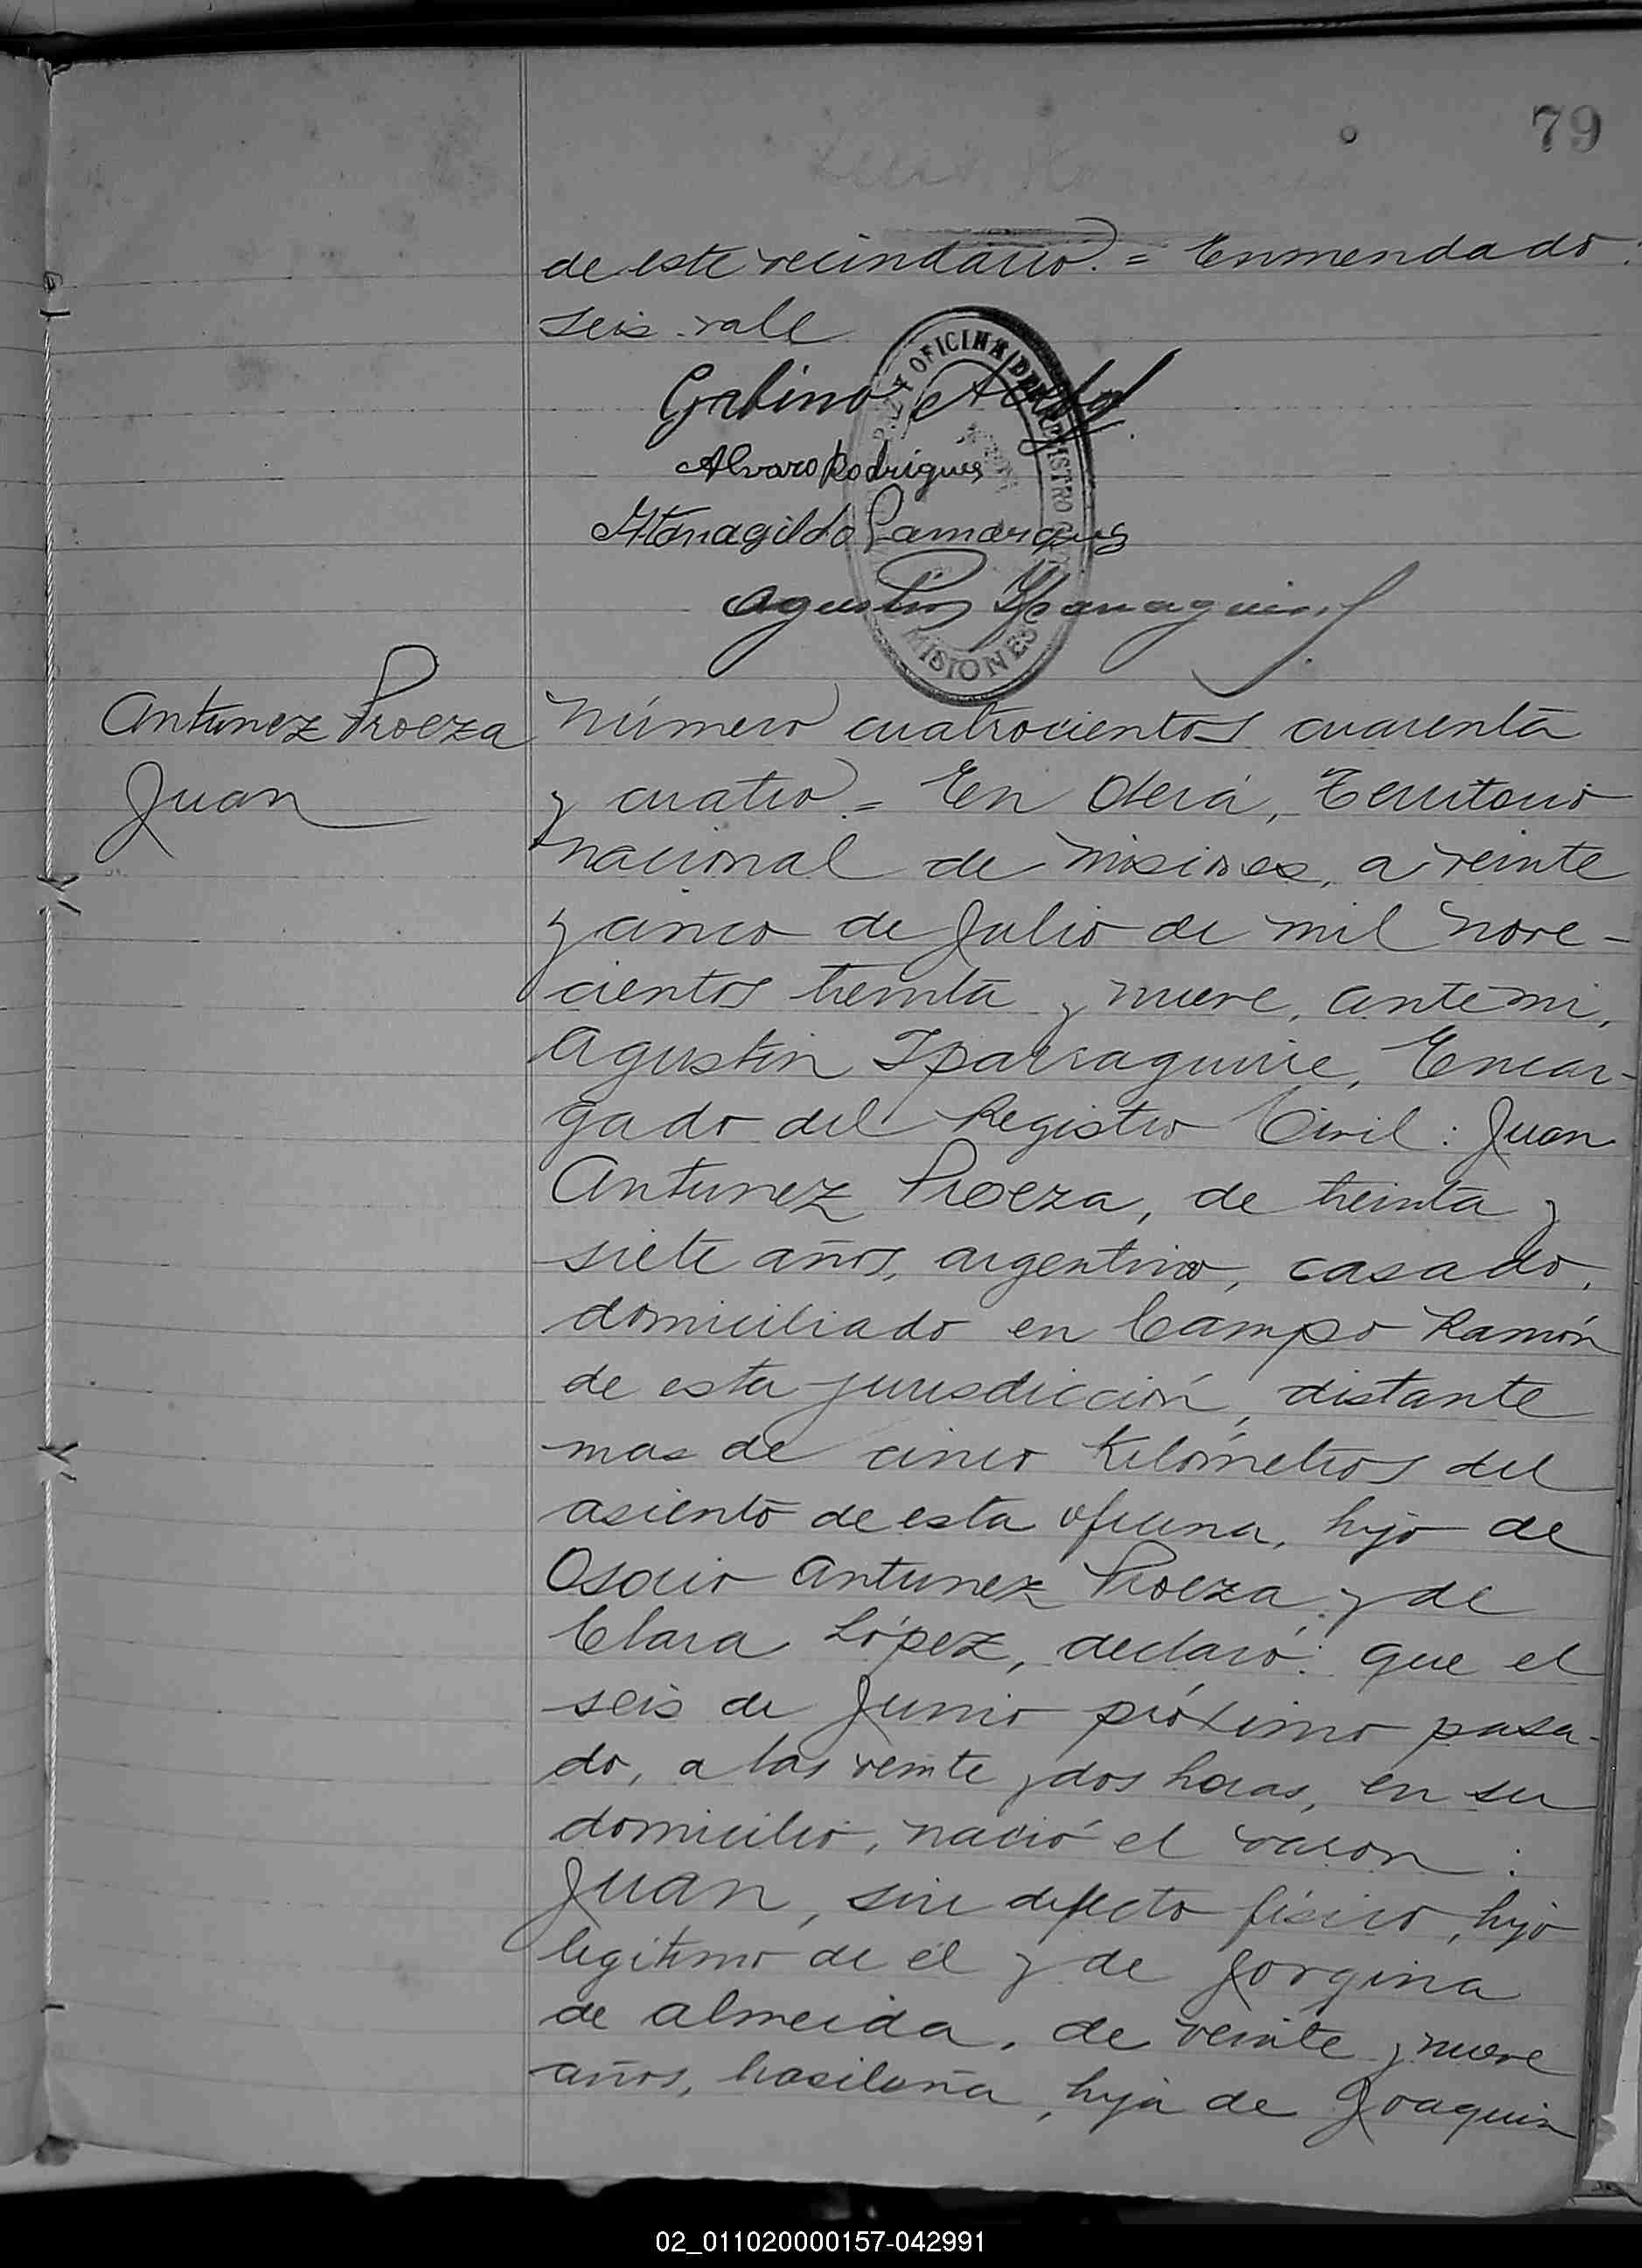 79
de este vecindario. = Enmendado:
seis. vale
OFICINA DEL REGISTRO
Gabino
Alvaro Rodrigues
Atanagildo Camargues
Agustin Iparraguirre
MISIONES
Antunez Proeza
Juan
Número cuatrocientos cuarenta
y cuatro = En Oberá, Territorio
nacional de Misiones, a veinte
y cinco de Julio de mil nove-
cientos treinta y nueve, ante mi,
Agustín Iparraguirre, Encar-
gado del Registro Civil: Juan
Antunez Proeza, de treinta y
siete años, argentino, casado,
domiciliado en Campo Ramón
de esta jurisdicción, distante
mas de cinco Kilómetros del
asiento de esta oficina, hijo de
Osorio Antunez Proeza y de
Clara López, declaró: que el
seis de Junio próximo pasa-
do, a las veinte y dos horas, en su
domicilio, nació el varon:
Juan, sin defecto físico, hijo
legitimo de él y de Jorgina
de Almeida, de veinte y nueve
años, brasileña, hija de Joaquin
02_011020000157-042991